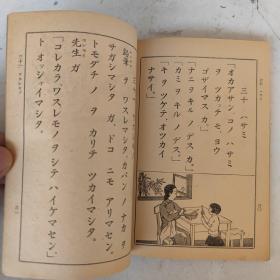 三十 ハサミ
「オカアサン コノ ハサミ
ヲ ツカッテ モ、ヨウ
ゴザイマス カ。」
「ナニヲ キル ノ デス カ。」
「カミ ヲ キル ノ デス。」
「キ ヲ ツケテ、オツカイ
ナサイ。」
鉛筆 ヲ ワスレマシタ。カバン ノ ナカ ヲ
サガシマシタ ガ、ドコ ニモ アリマセン。
トモダチ ノ ヲ カリテ ツカイマシタ。
先生 ガ
「コレカラ、ワスレモノ ヲ シテ ハ イケマセン。」
ト オッシャイマシタ。